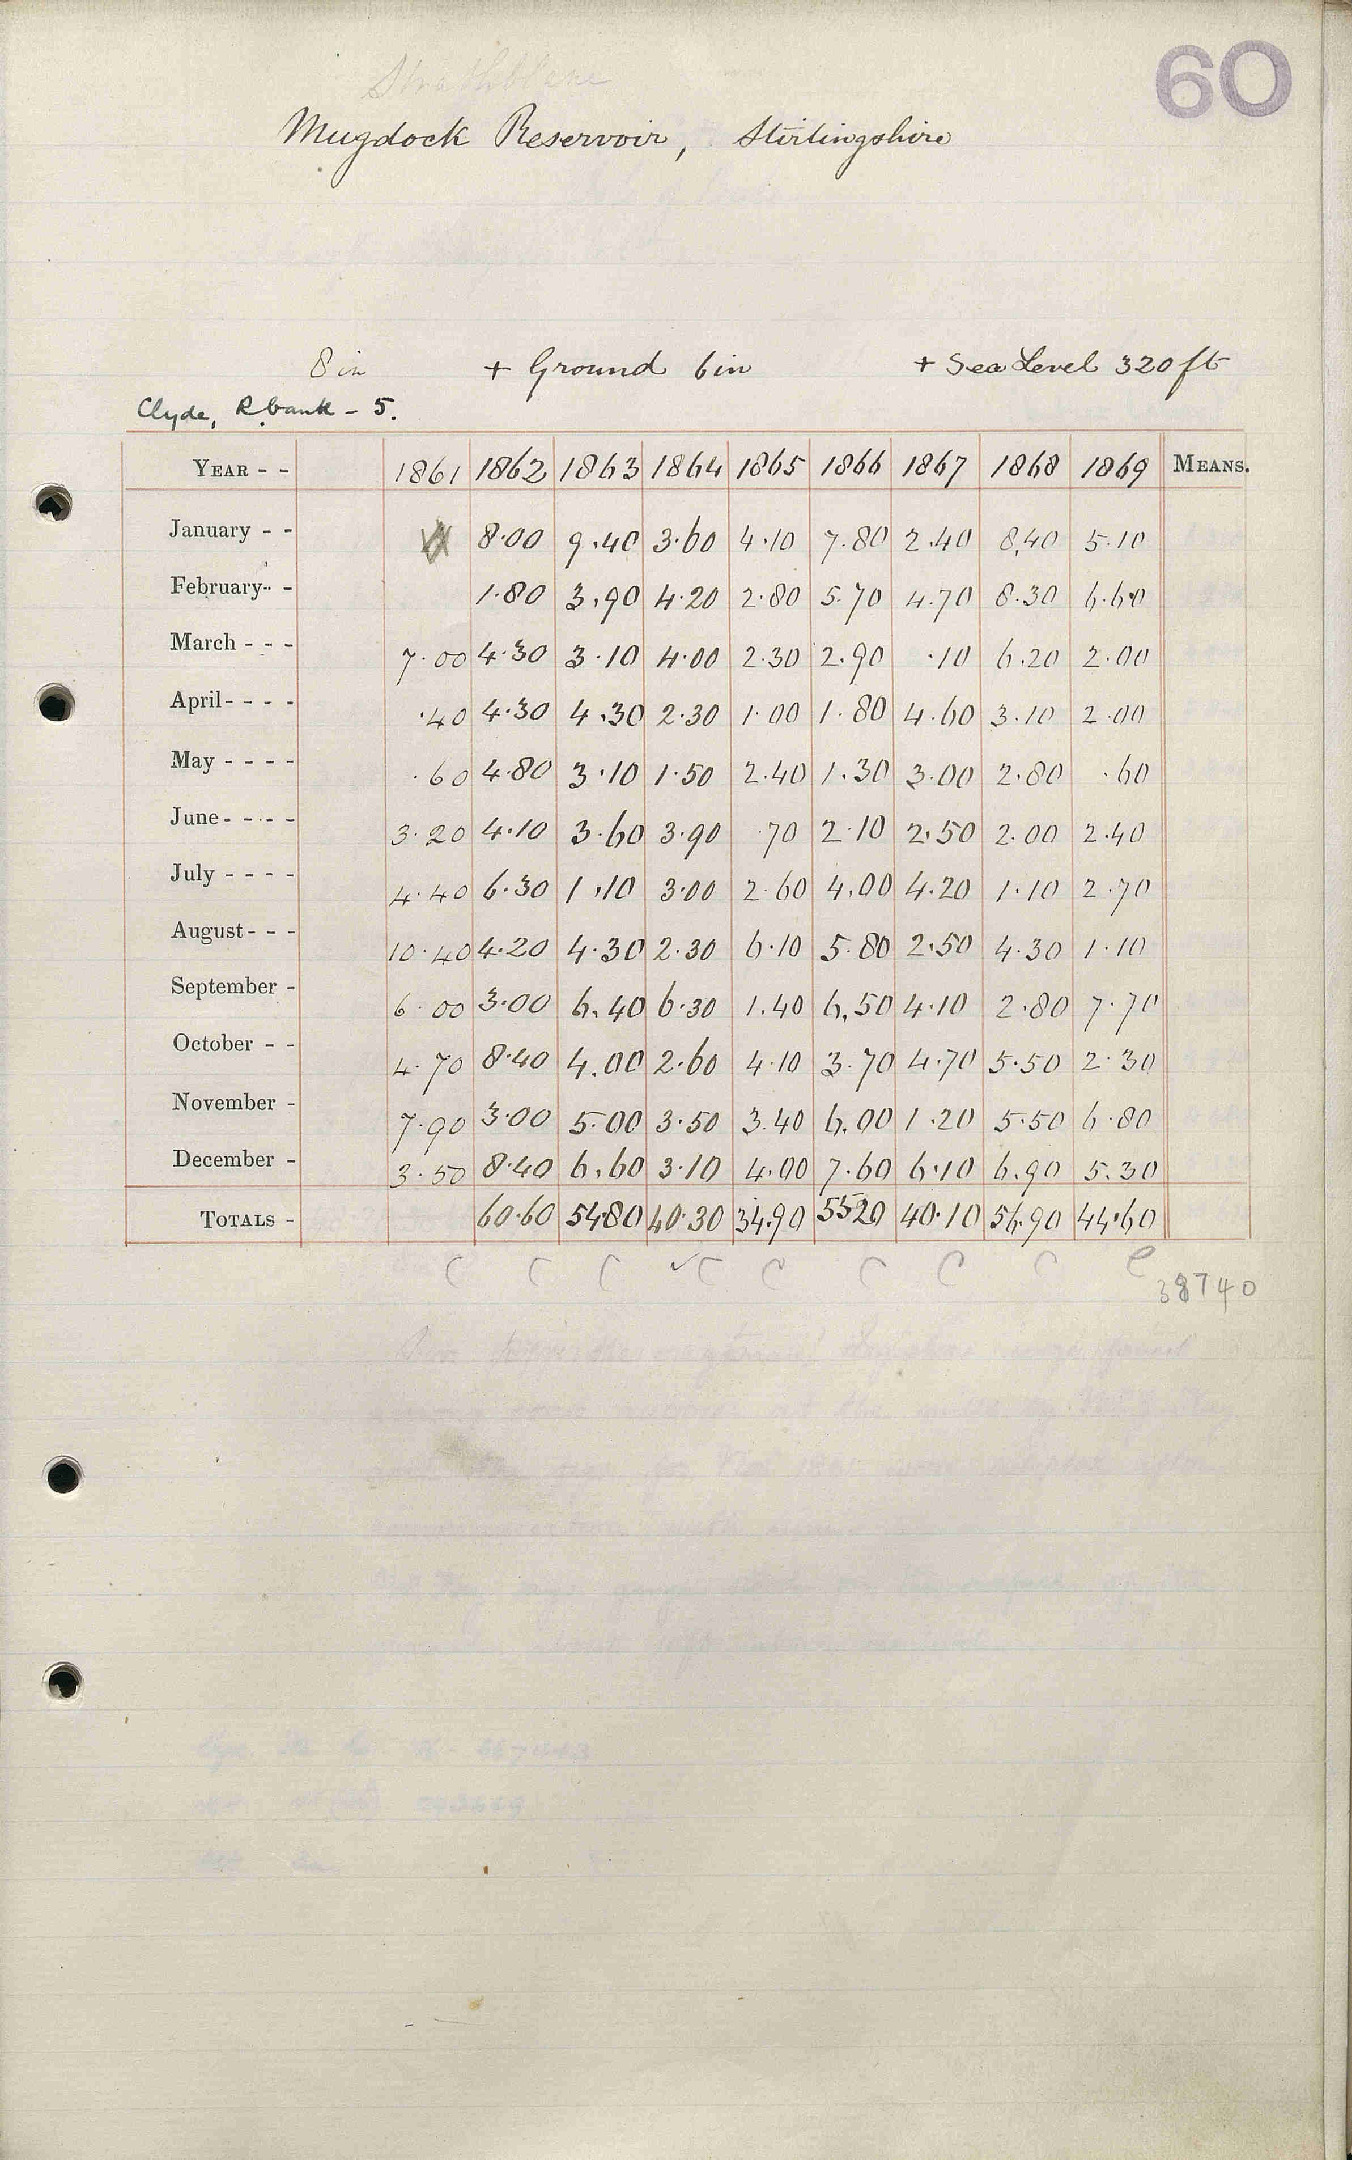 60
Strathblane
Mugdock Reservoir, Stirlingshire
8 in + Ground 6 in + Sea Level 320 ft
Clyde, R. bank - 5.
YEAR - - 1861 1862 1863 1864 1865 1866 1867 1868 1869 MEANS.
January - - 8.00 9.40 3.60 4.10 7.80 2.40 8.40 5.10
February - - 1.80 3.90 4.20 2.80 5.70 4.70 8.30 6.60
March - - - 7.00 4.30 3.10 4.00 2.30 2.90 .10 6.20 2.00
April - - - - .40 4.30 4.30 2.30 1.00 1.80 4.60 3.10 2.00
May - - - - .60 4.80 3.10 1.50 2.40 1.30 3.00 2.80 .60
June - - - - 3.20 4.10 3.60 3.90 .70 2.10 2.50 2.00 2.40
July - - - - 4.40 6.30 1.10 3.00 2.60 4.00 4.20 1.10 2.70
August - - - 10.40 4.20 4.30 2.30 6.10 5.80 2.50 4.30 1.10
September - 6.00 3.00 6.40 6.30 1.40 6.50 4.10 2.80 7.70
October - - 4.70 8.40 4.00 2.60 4.10 3.70 4.70 5.50 2.30
November - 7.90 3.00 5.00 3.50 3.40 6.00 1.20 5.50 6.80
December - 3.50 8.40 6.60 3.10 4.00 7.60 6.10 6.90 5.30
TOTALS - 60.60 54.80 40.30 34.90 55.20 40.10 56.90 44.60
C C C ✓C C C C C C
38740